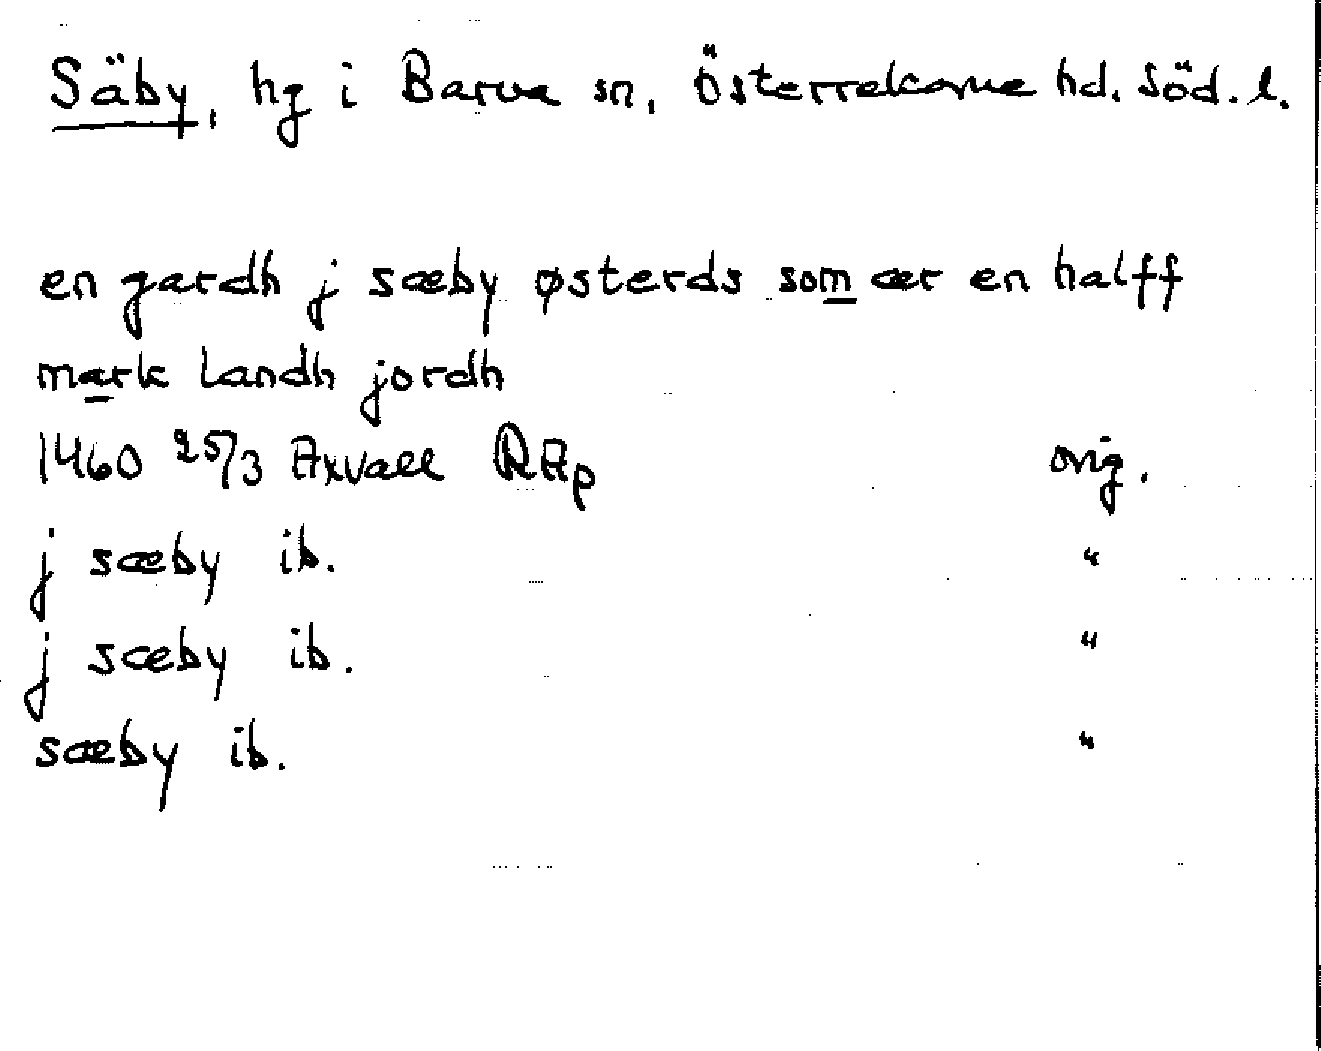 Säby, hg i Barva sn, Österrekarne hd. Söd. l.
en gardh j sæby østerds som ær en halff
mark landh jordh
1460 25/3 Axvall RAp orig.
j sæby ib. "
j sæby ib. "
sæby ib. "